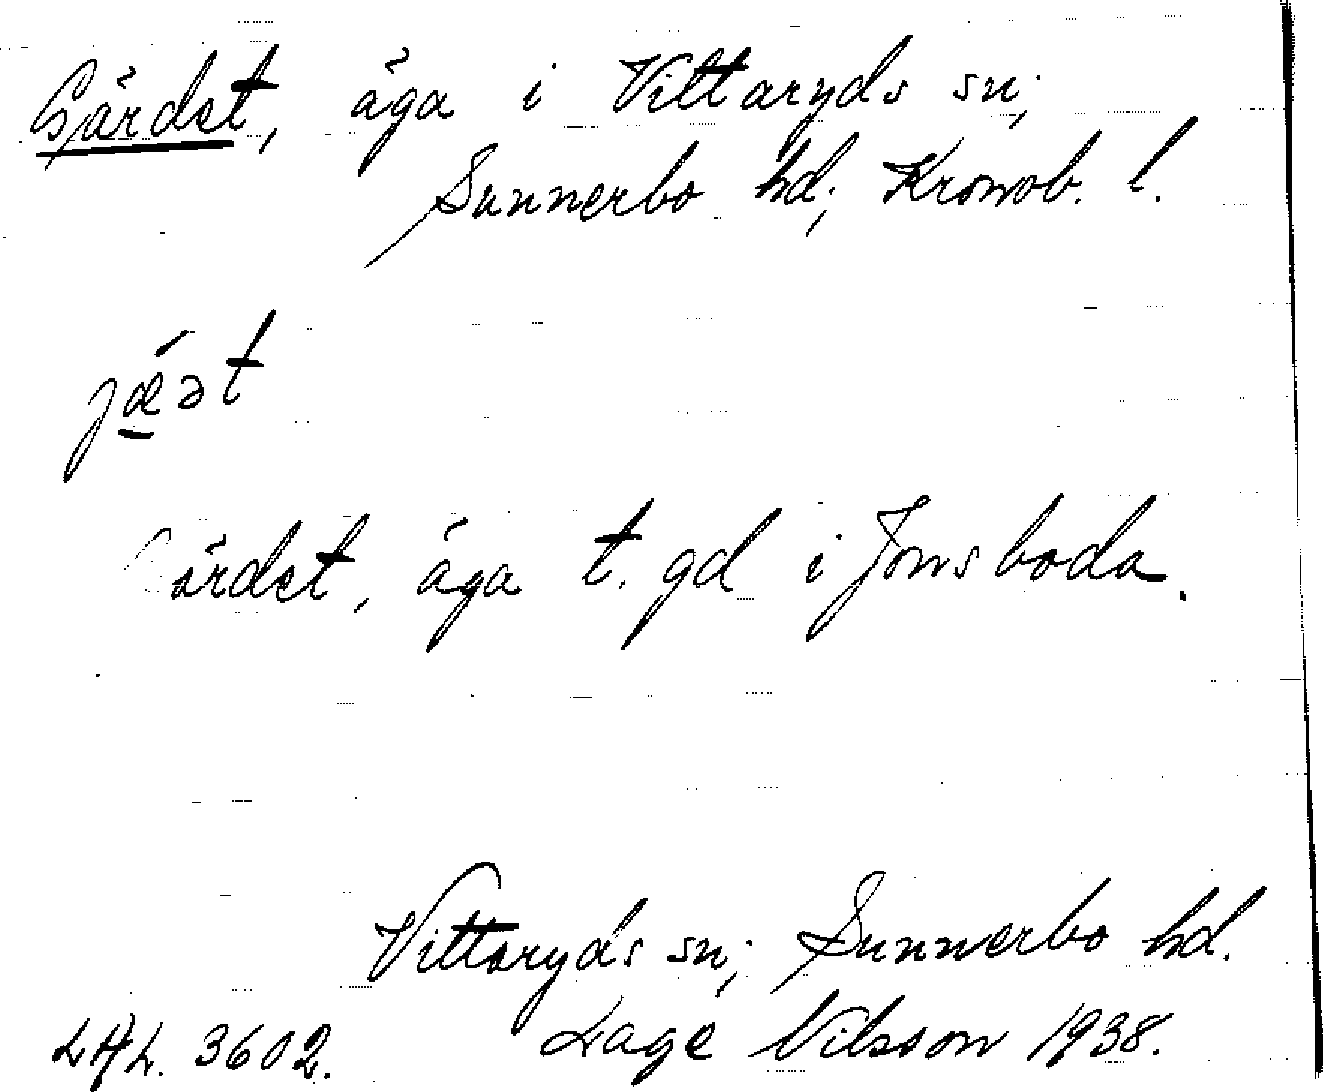 Gärdet, äga i Vittaryds sn;
Sunnerbo hd; Kronob. l.
jǽət
Gärdet, äga t. gd i Jonsboda.
Vittaryds sn; Sunnerbo hd.
LAL. 3602. Lage Nilsson 1938.